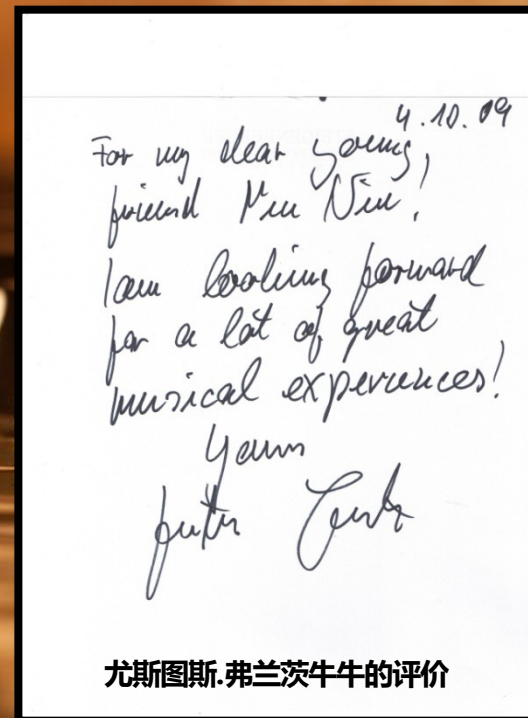 4.10.09
For my dear young,
friend Niu Niu!
I am looking forward
for a lot of great
musical experiences!
Yours
Justus Frantz
尤斯图斯.弗兰茨牛牛的评价